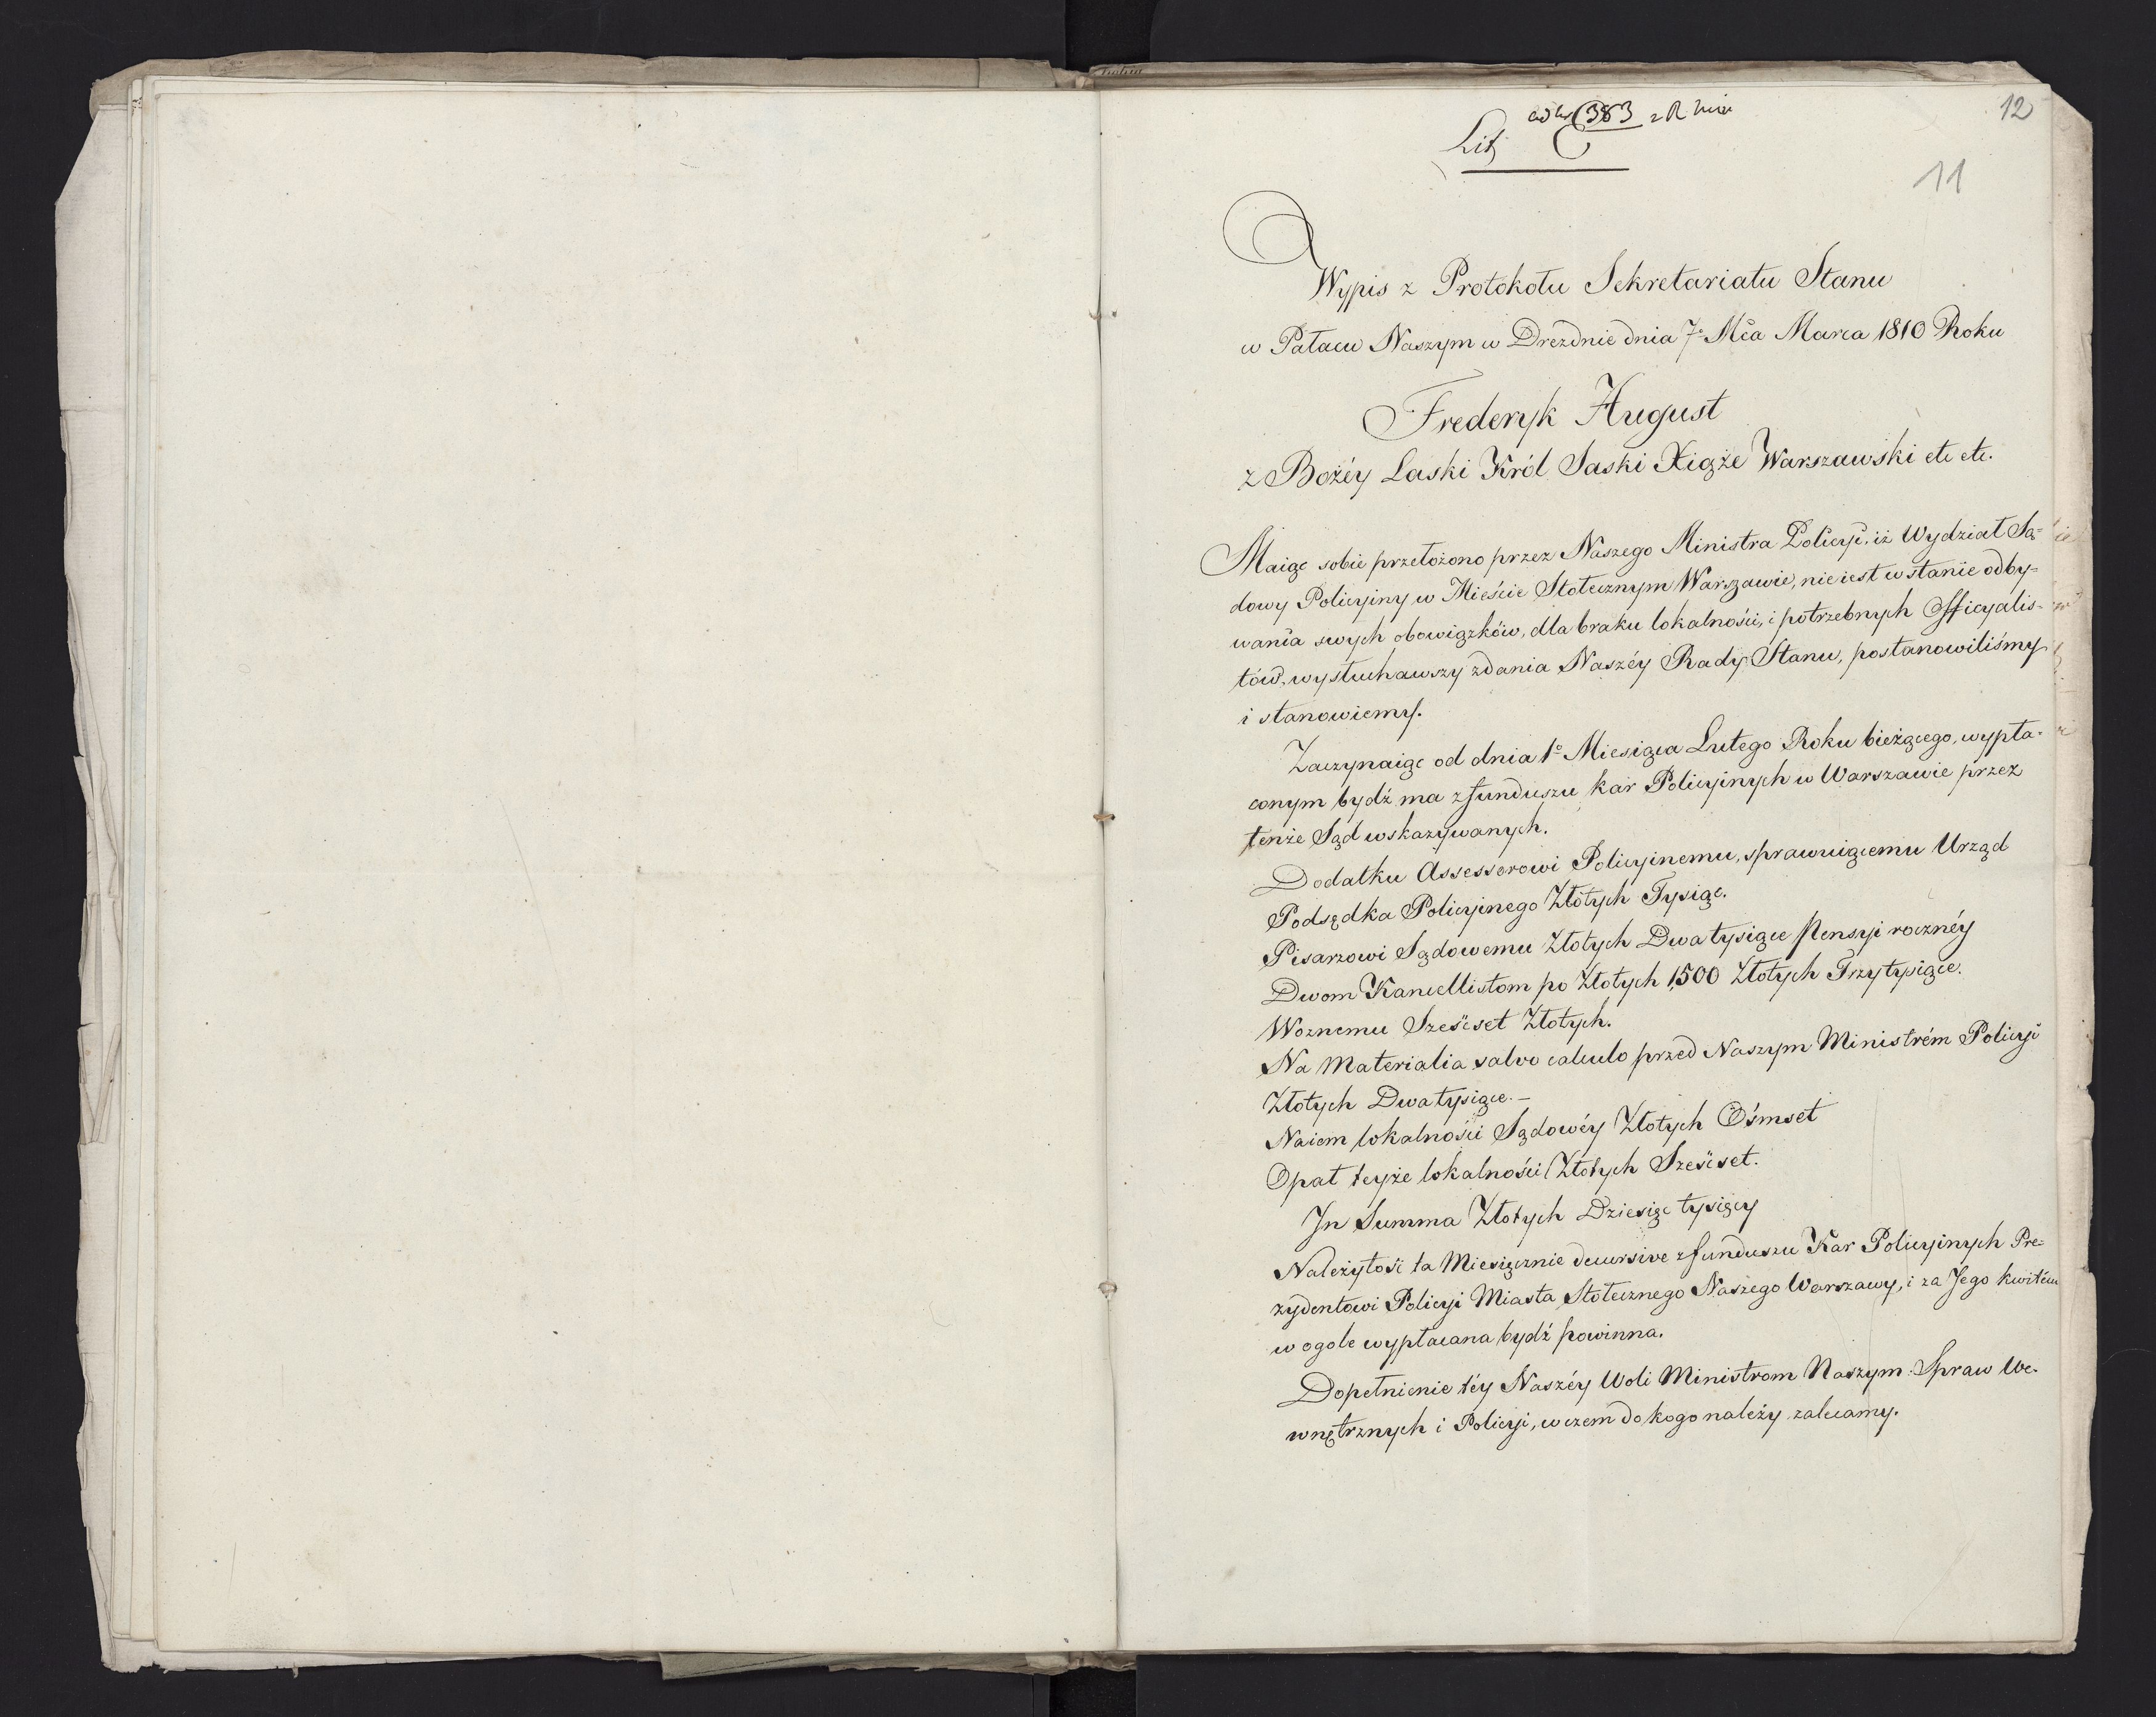 12
383
Lit C
11
Wypis z Protokołu Sekretariatu Stanu
w Pałacu Naszym w Dreznie dnia 7º Mca Marca 1810 Roku
Frederyk August
z Bożéy Laski Król Saski Xiąże Warszawski etc etc.
Maiąc sobie przełożono przez Naszego Ministra Policyi, iż Wydział Są=
dowy Policyiny w Mieście Stołecznym Warszawie, nie iest w stanie odby=
wania swych obowiązków, dla braku lokalności, i potrzebnych Officyalis=
tów, wysłuchawszy zdania Naszéy Rady Stanu, postanowiliśmy
i stanowiemy.
Zaczynaiąc od dnia 1º Miesiąca Lutego Roku bieżącego, wypła=
conym bydź ma z funduszu kar Policyinych w Warszawie przez
tenże Sąd wskazywanych.
Dodatku Assessorowi Policyinemu, sprawuiącemu Urząd
Podsędka Policyinego Złotych Tysiąc.
Pisarzowi Sądowemu Złotych Dwa tysiące Pensyi rocznéy
Dwom Kancellistom po Złotych 1,500 Złotych Trzy tysiące.
Woznemu Sześćset Złotych.
Na Materialia salvo calculo przed Naszym Ministrém Policyi
Złotych Dwa tysiące. —
Naiem lokalności Sądowéy Złotych Ośmset
Opał teyże lokalności Złotych Sześćset.
In Summa Złotych Dziesięć tysięcy
Należytość ta Miesięcznie decursive z funduszu Kar Policyinych Pre=
zydentowi Policyi Miasta Stołecznego Naszego Warszawy, i za Jego kwitém
w ogole wypłacana bydź powinna.
Dopełnienie téy Naszéy Woli Ministrom Naszym Spraw We=
wnętrznych i Policyi, w czem do kogo należy zalecamy.